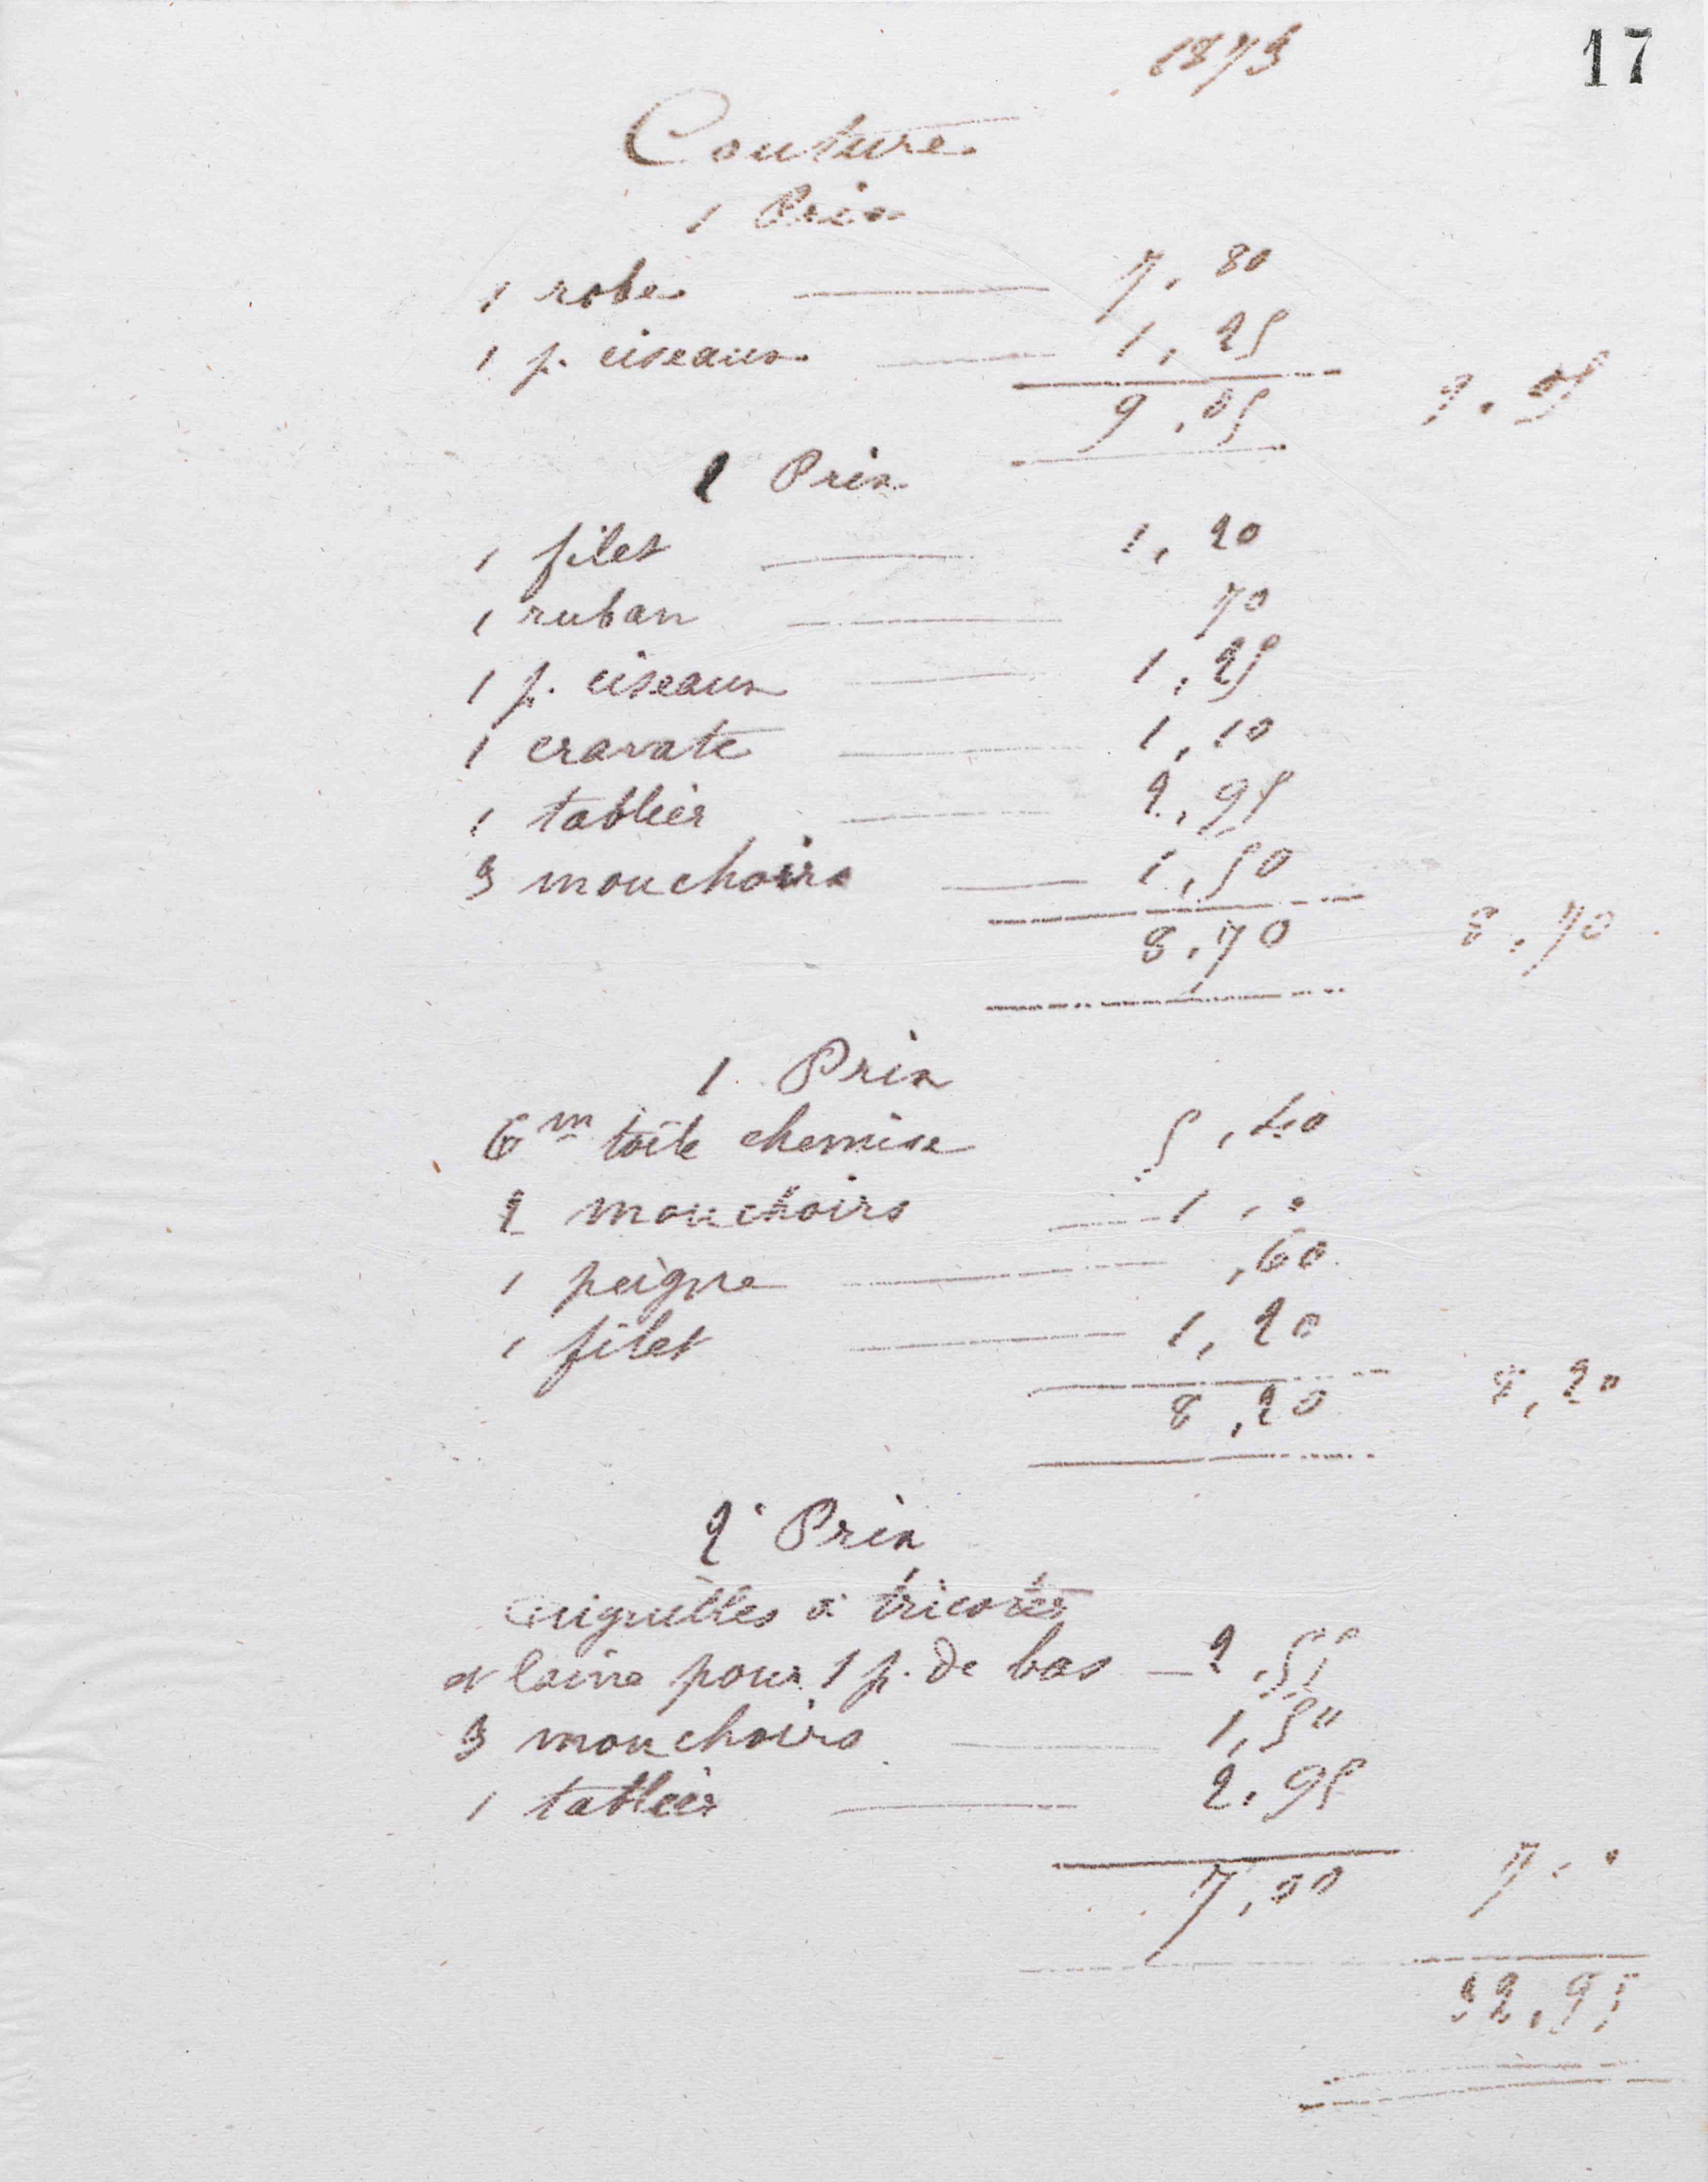 17
1873
Couture
1 Prix
1 robe 7,80
1 p. ciseaux 1,25
9,05 9.05
2 Prix
1 filet 1,20
1 ruban 70
1 p. ciseaux 1,25
1 cravate 1,10
1 tablier 2,95
3 mouchoirs 1,50
8,70 8,70
1 Prix
6m toile chemise 5,40
2 mouchoirs 1,"
1 peigne ,60
1 filet 1,20
8,20 8,20
2e Prix
aiguilles à tricoter
et laine pour 1 p. de bas 2,55
3 mouchoirs 1,5"
1 tablier 2,95
7,00 7,"
32,95